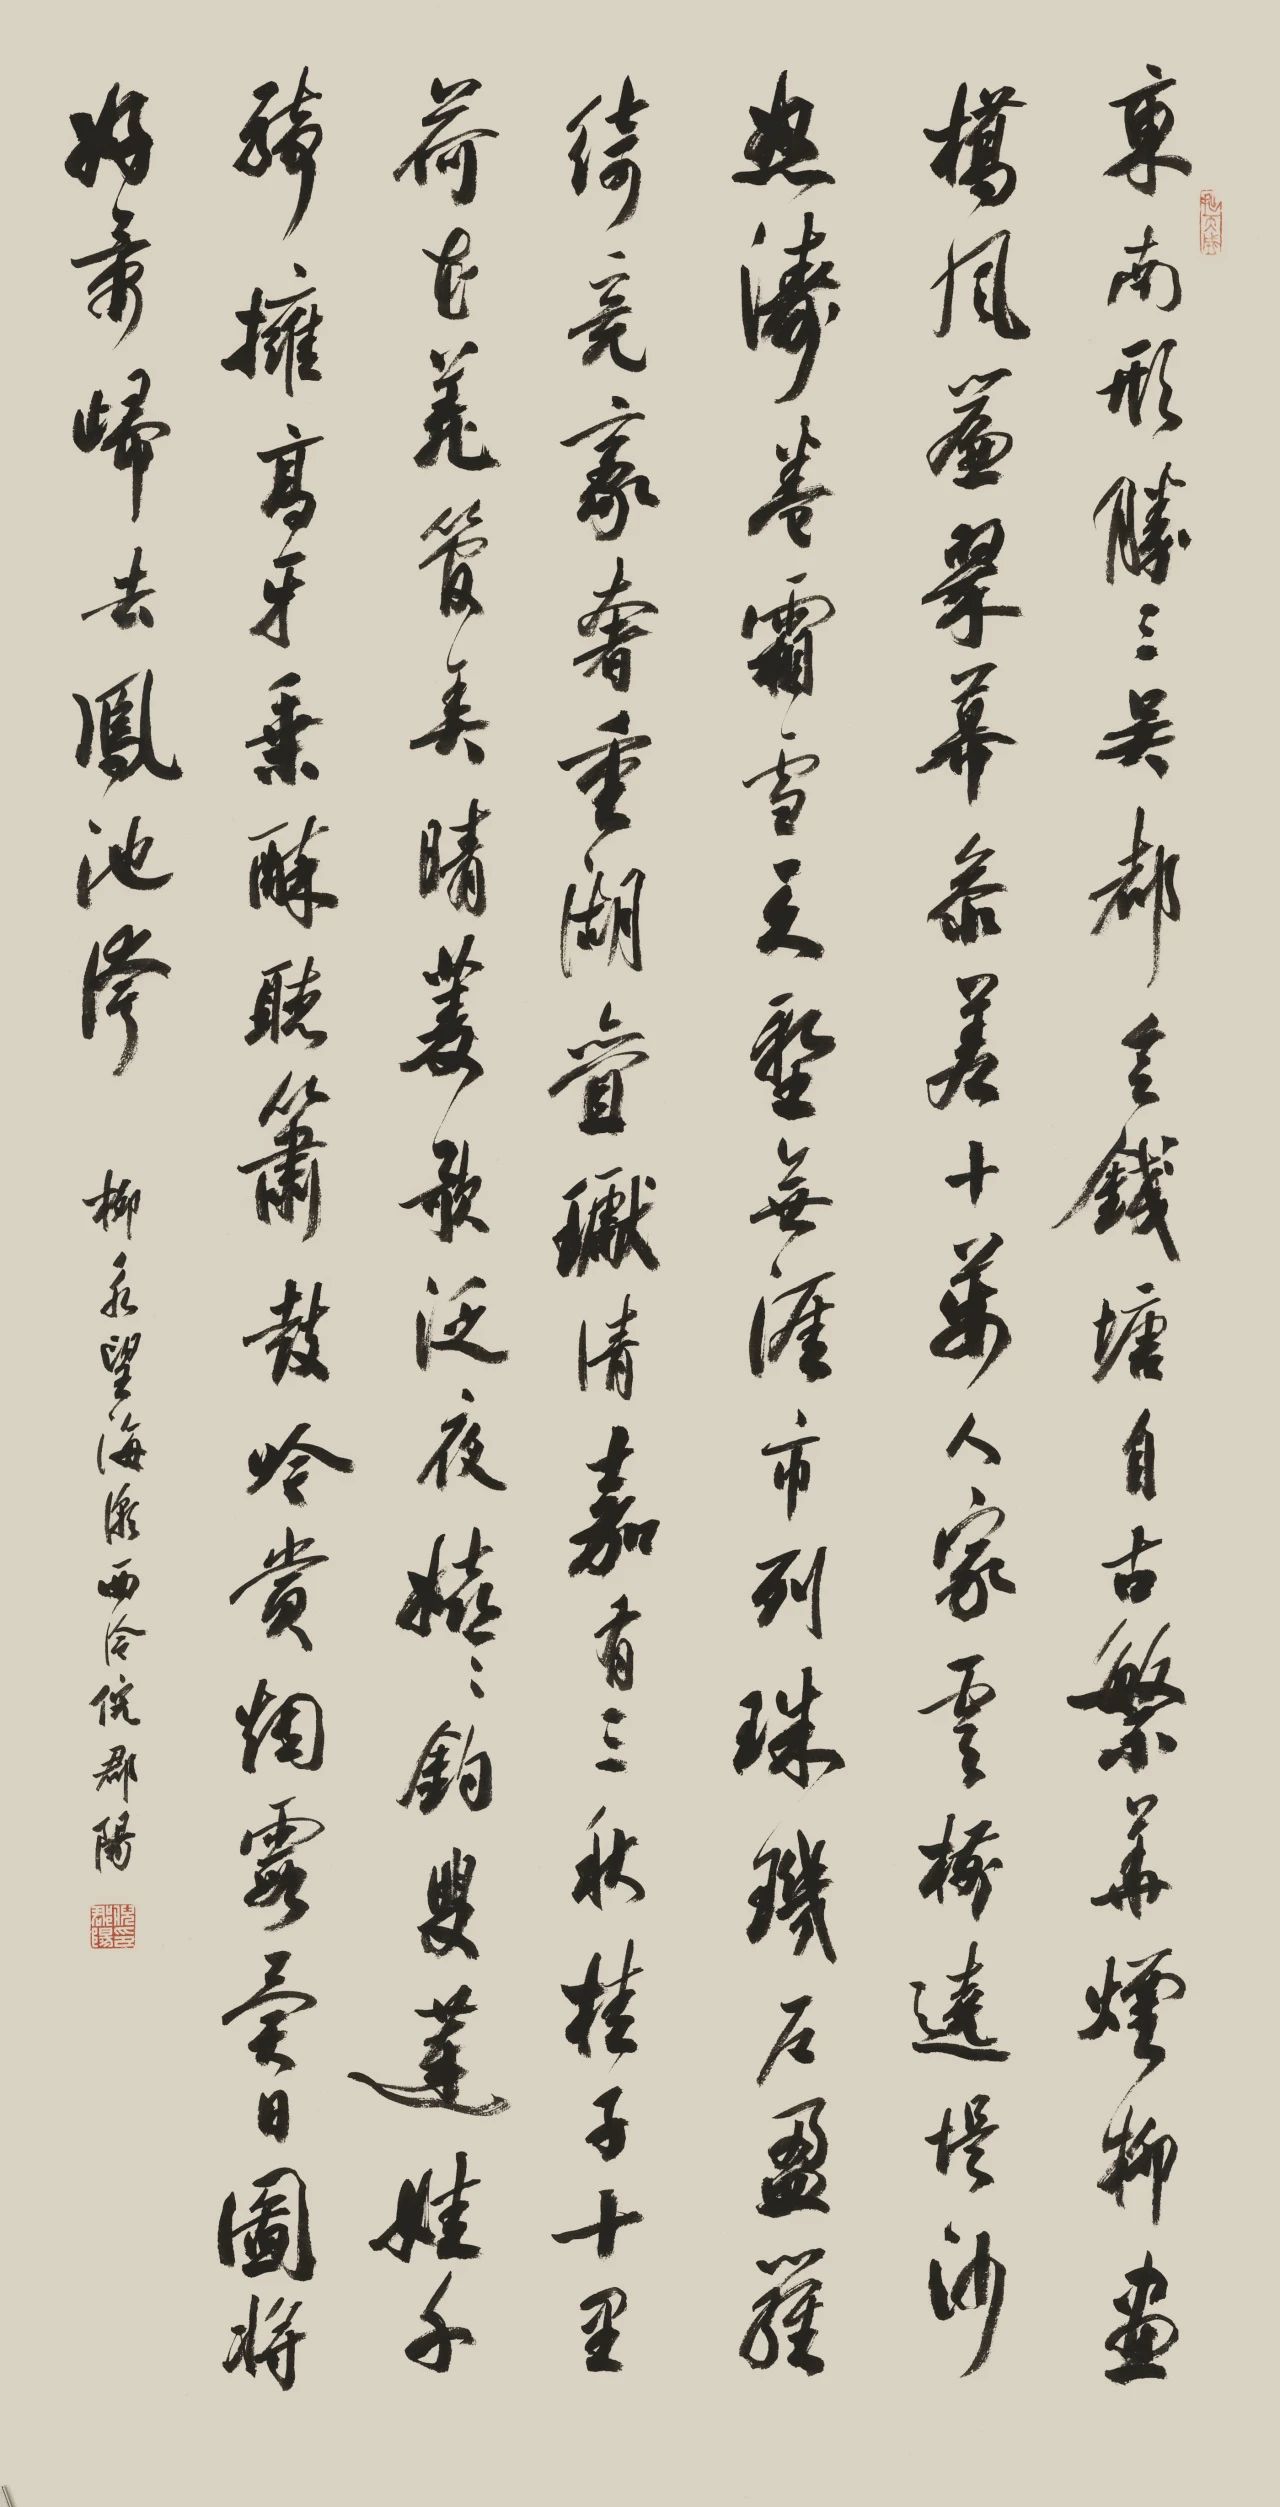 東南形勝三吳都會錢塘自古繁華煙柳畫
橋風簾翠幕參差十萬人家雲樹遶堤沙
怒濤卷霜雪天塹無涯市列珠璣戶盈羅
綺竞豪奢重湖疊巘清嘉有三秋桂子十里
荷花羌管弄晴菱歌泛夜嬉〻釣叟蓮娃千
騎擁高牙乘醉聽簫鼓吟賞烟霞異日圖將
好景歸去鳳池誇
柳永望海潮西泠倪郡陽
倪印郡陽